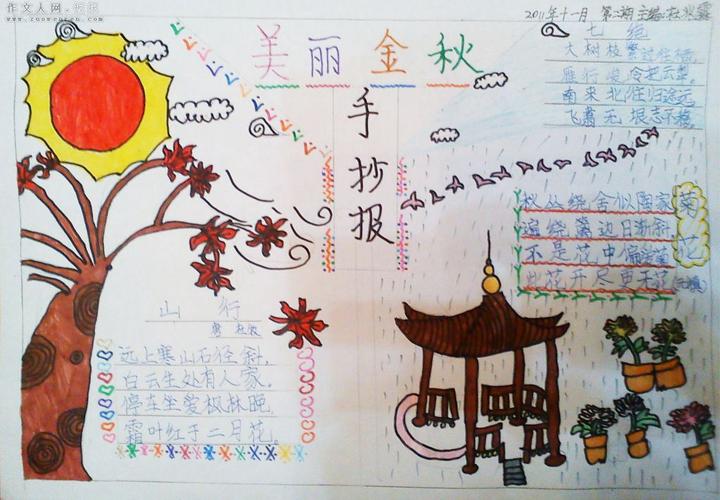 作文人网
www.zuowenren.com
2011年十一月 第二期 主编:杜
美丽金秋
手抄报
七绝
大树枝繁过往桥,
雁行
南来北往归途远,
飞翥无垠志不移
菊花
秋丛绕舍似陶家
遍绕篱边日渐斜
不是花中偏爱菊
此花开尽更无花
山行
杜牧
远上寒山石径斜,
白云生处有人家。
停车坐爱枫林晚,
霜叶红于二月花。